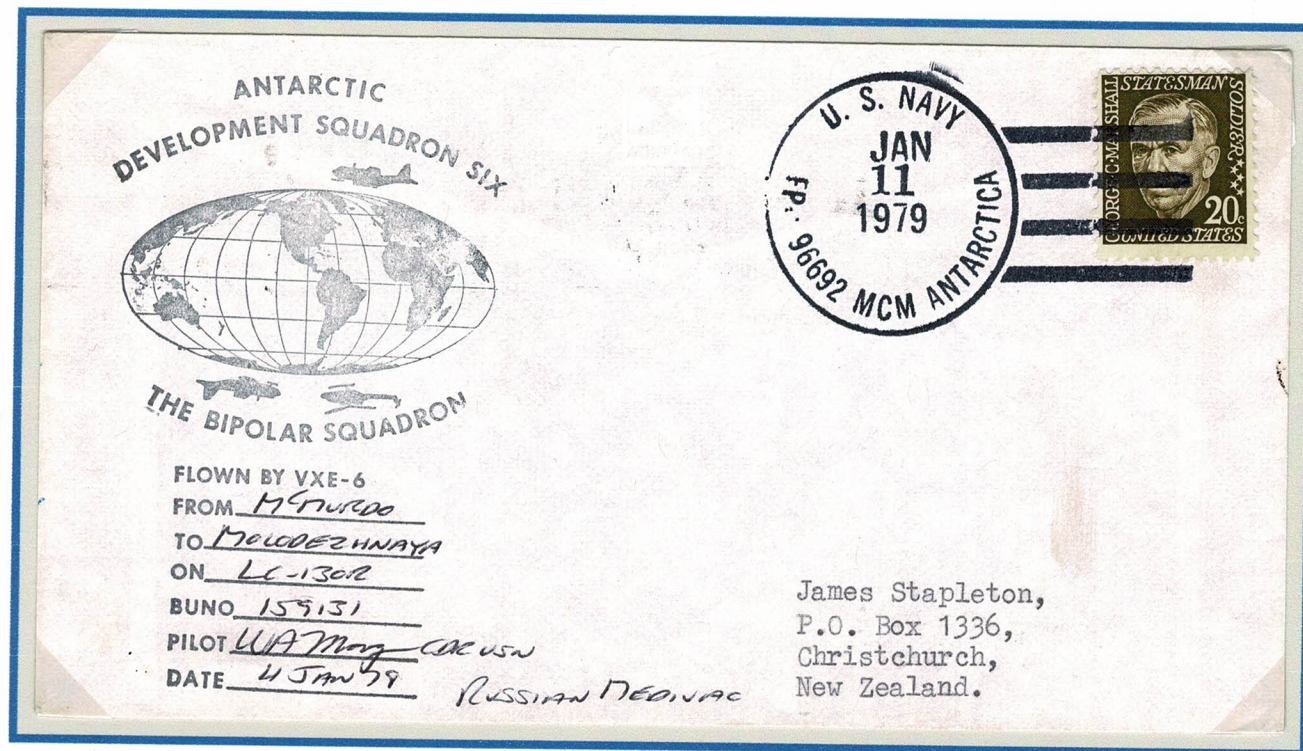 ANTARCTIC
DEVELOPMENT SQUADRON SIX
THE BIPOLAR SQUADRON
FLOWN BY VXE-6
FROM McMURDO
TO MOLODEZHNAYA
ON LC-130R
BUNO 159131
PILOT WA CDR USN
DATE 4 JAN 79
RUSSIAN MEDIVAC
U. S. NAVY
JAN
11
1979
FP. 96692 MCM ANTARCTICA
GEORGE C. MARSHALL
STATESMAN
SOLDIER
20c
UNITED STATES
James Stapleton,
P.O. Box 1336,
Christchurch,
New Zealand.